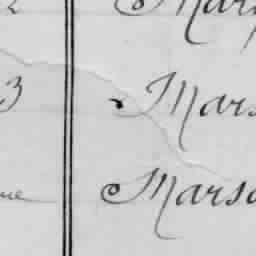 2 Mar
3 Mars
ue Marso